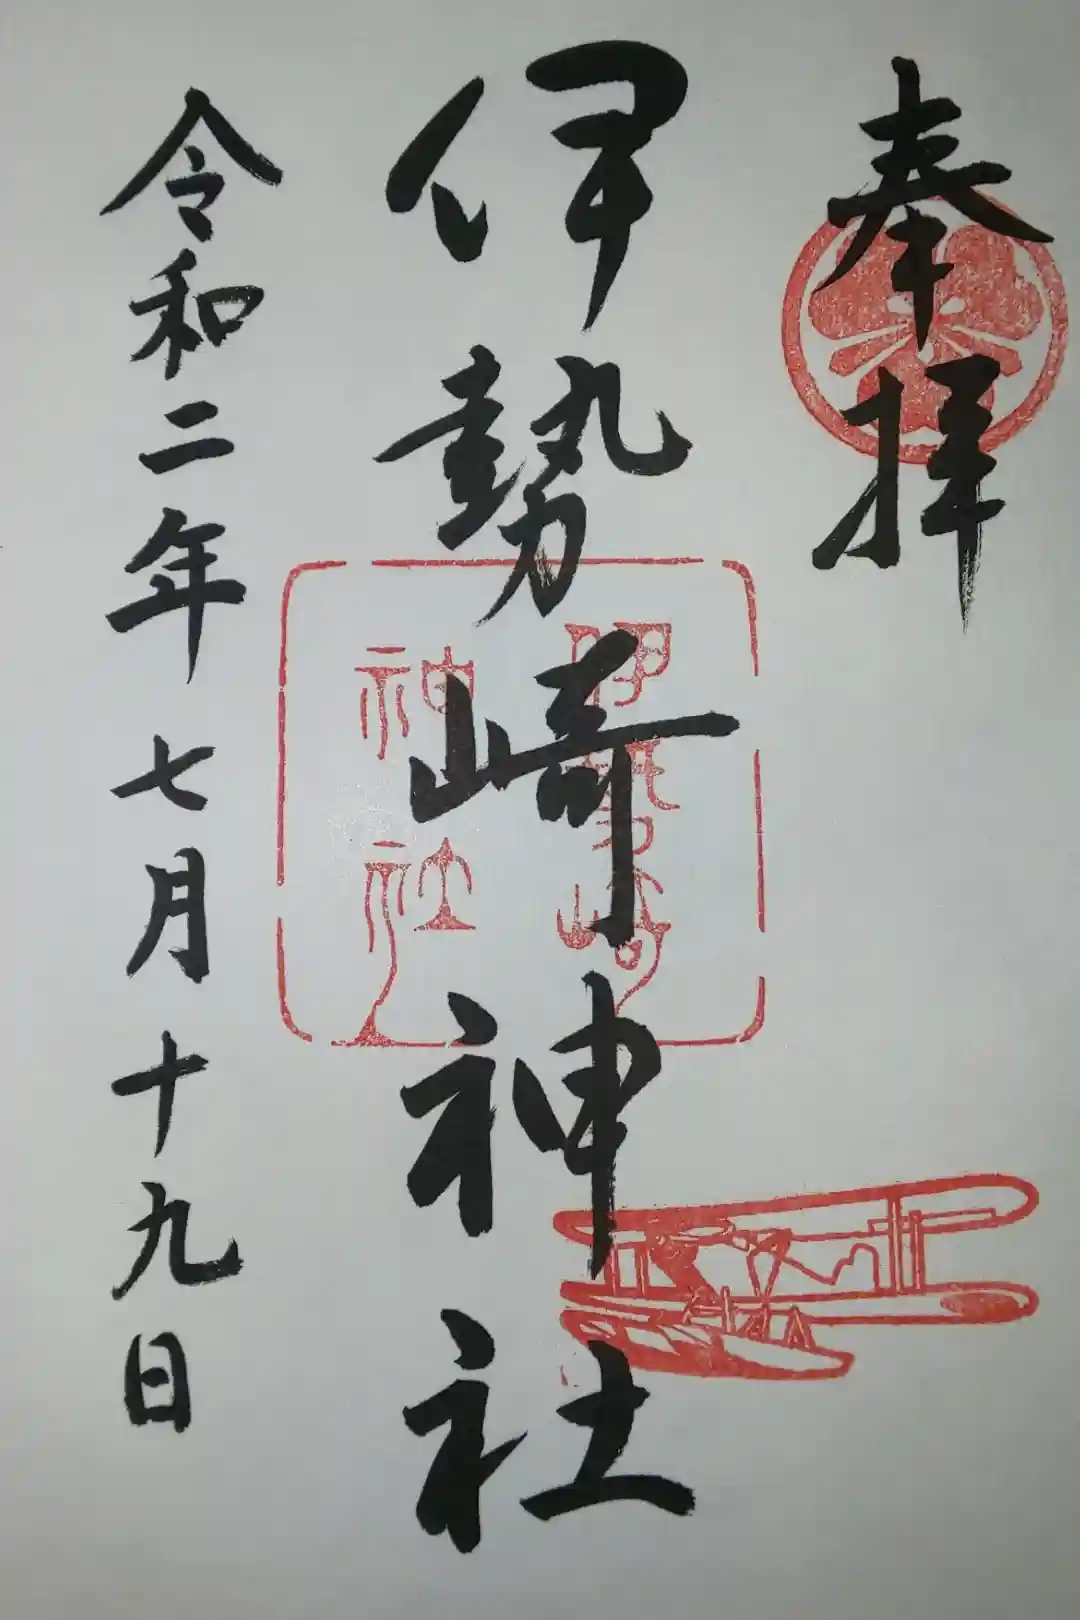 奉拝
伊勢崎神社
伊勢崎
神社
令和二年七月十九日